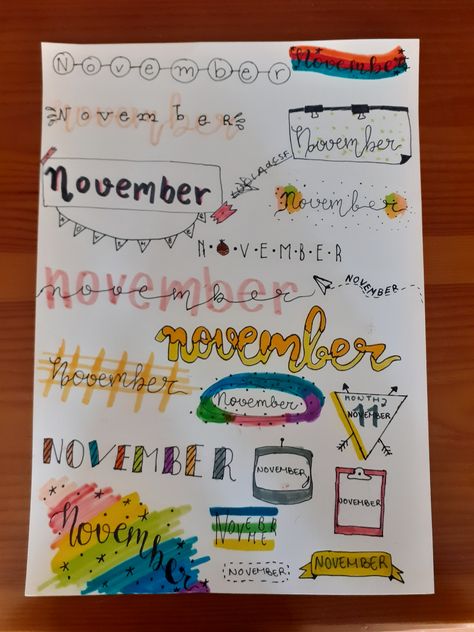 November
November
November
november
November
November
November
NOVEMBER
november
november
NOVEMBER
november
November
November
MONTH
11
NOVEMBER
NOVEMBER
NOVEMBER
NOVEMBER
November
NOVEMBER
NOVEMBER
NOVEMBER